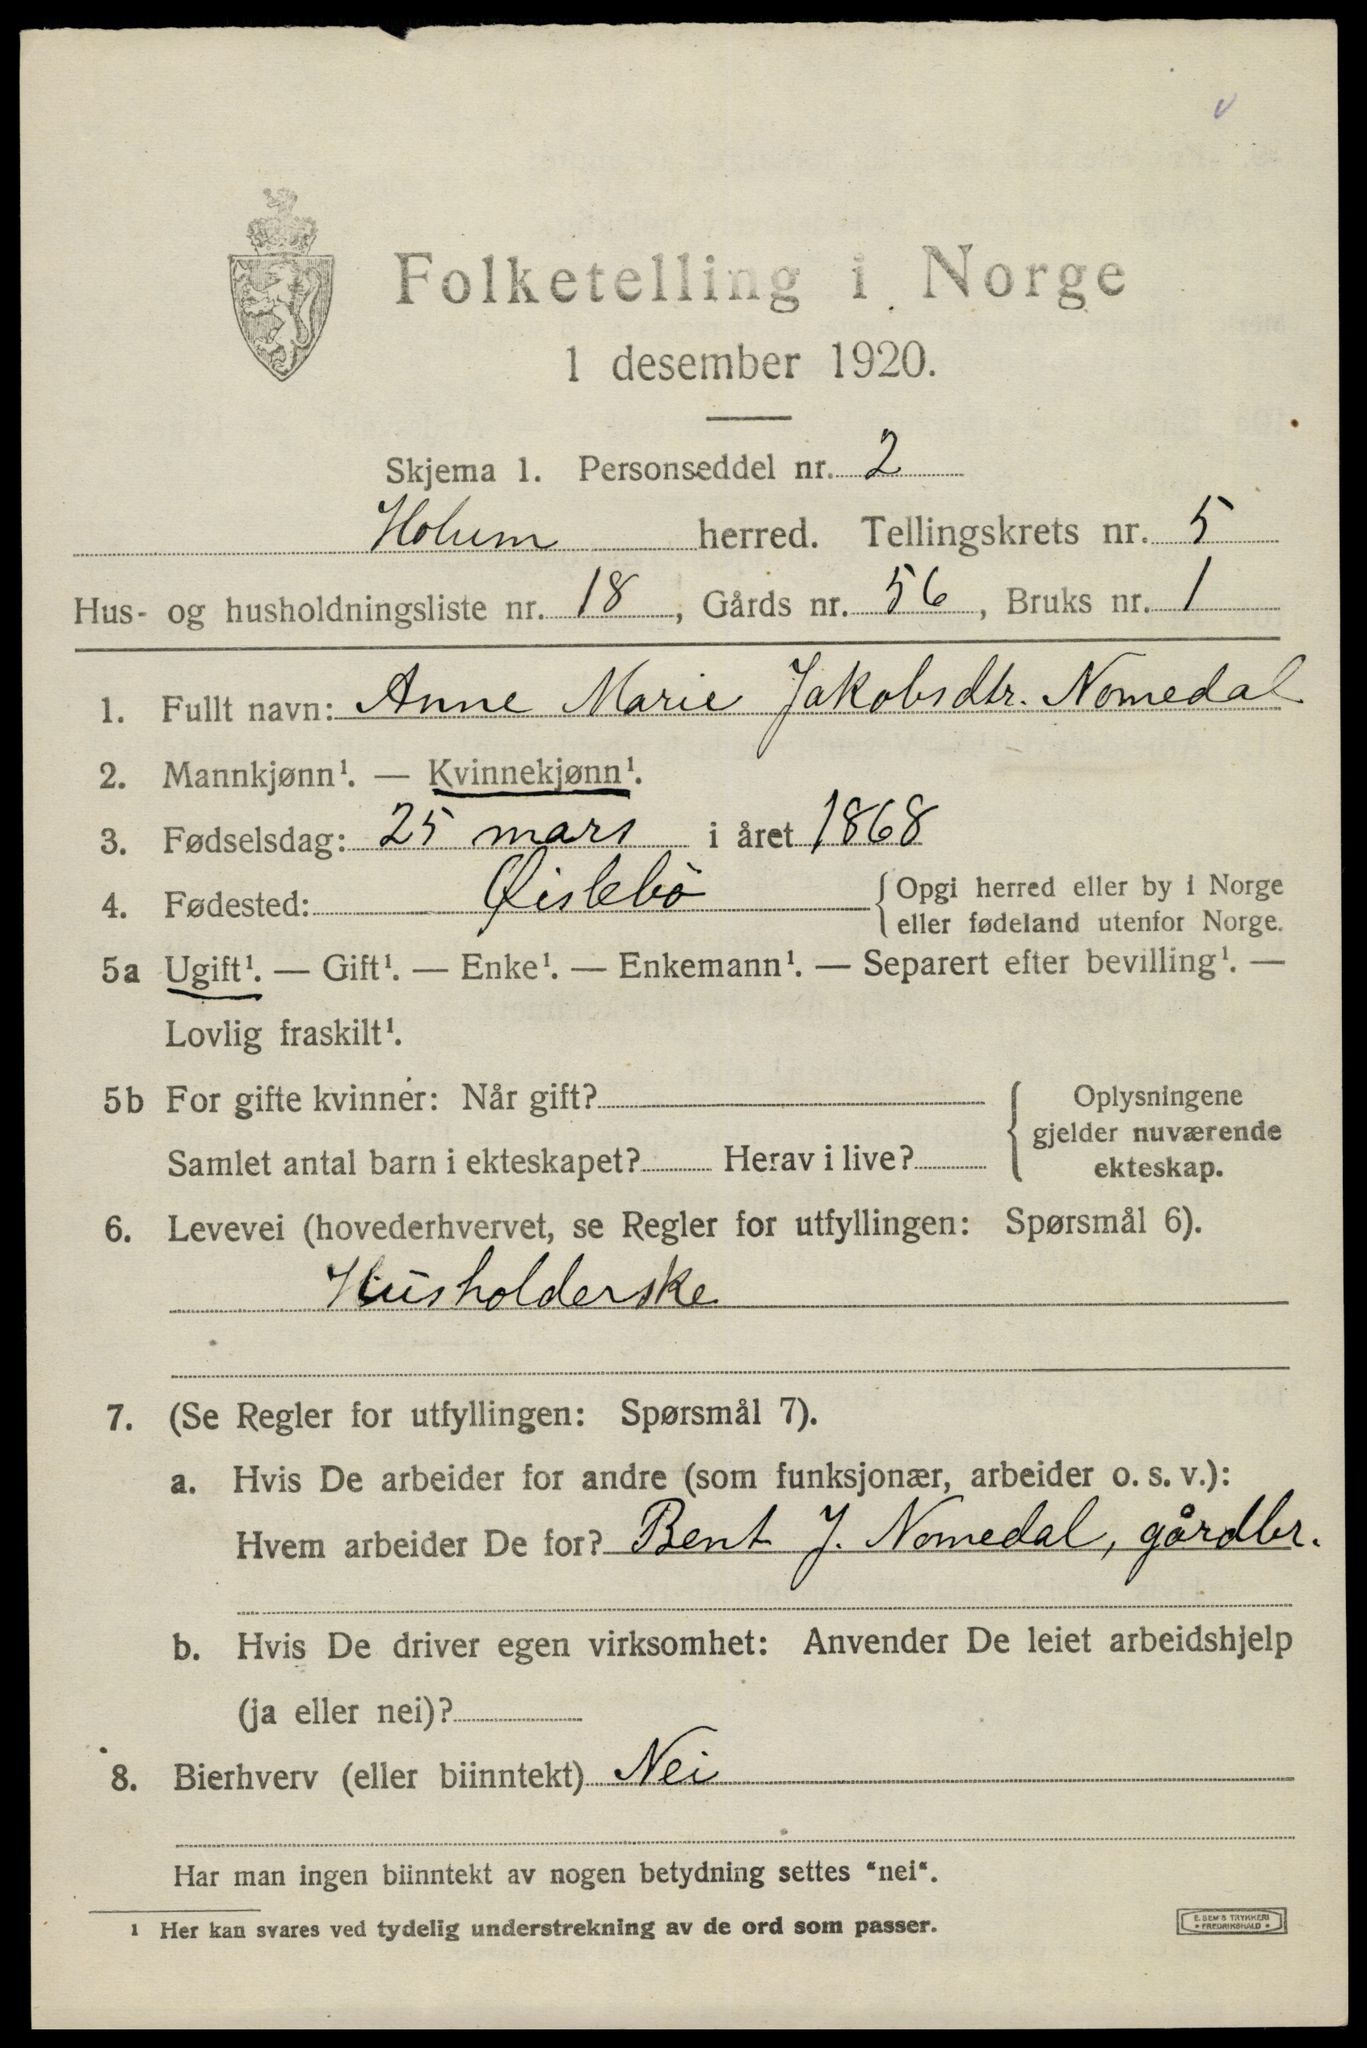 Folketelling i Norge
1 desember 1920.
Skjema 1. Personseddel nr. 2
Holum herred. Tellingskrets nr. 5
Hus- og husholdningsliste nr. 18, Gårds nr. 56, Bruks nr. 1
1. Fullt navn: Anne Marie Jakobsdtr. Nomedal
2. Mannkjønn¹. — Kvinnekjønn¹.
3. Fødselsdag: 25 mars i året 1868
4. Fødested: Øislebö { Opgi herred eller by i Norge
eller fødeland utenfor Norge.
5a Ugift¹. — Gift¹. — Enke¹. — Enkemann¹. — Separert efter bevilling¹. —
Lovlig fraskilt¹.
5b For gifte kvinner: Når gift? { Oplysningene
gjelder nuværende
Samlet antal barn i ekteskapet? Herav i live? ekteskap.
6. Levevei (hovederhvervet, se Regler for utfyllingen: Spørsmål 6).
Husholderske
7. (Se Regler for utfyllingen: Spørsmål 7).
a. Hvis De arbeider for andre (som funksjonær, arbeider o. s. v.):
Hvem arbeider De for? Bent J. Nomedal, gårdbr.
b. Hvis De driver egen virksomhet: Anvender De leiet arbeidshjelp
(ja eller nei)?
8. Bierhverv (eller biinntekt) Nei
Har man ingen biinntekt av nogen betydning settes "nei".
¹ Her kan svares ved tydelig understrekning av de ord som passer.
E. SEM'S TRYKKERI
* FREDRIKSHALD *